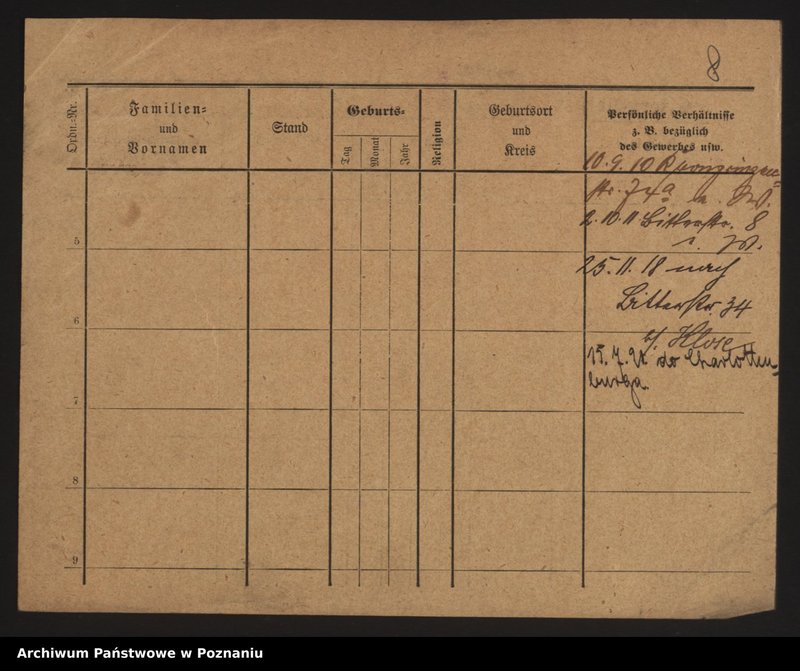 8
Ordn.-Nr.
Familien-
und
Vornamen
Stand
Geburts-
Tag
Monat
Jahr
Religion
Geburtsort
und
Kreis
Persönliche Verhältnisse
z. B. bezüglich
des Gewerbes usw.
10. 9. 10
str. 74a
2. 10. 11 Bitterstr. 8
25. 11. 18 nach
Bitterstr. 34
b/ Klose
15. 7. do Charlotten-
burga
5
6
7
8
9
Archiwum Państwowe w Poznaniu